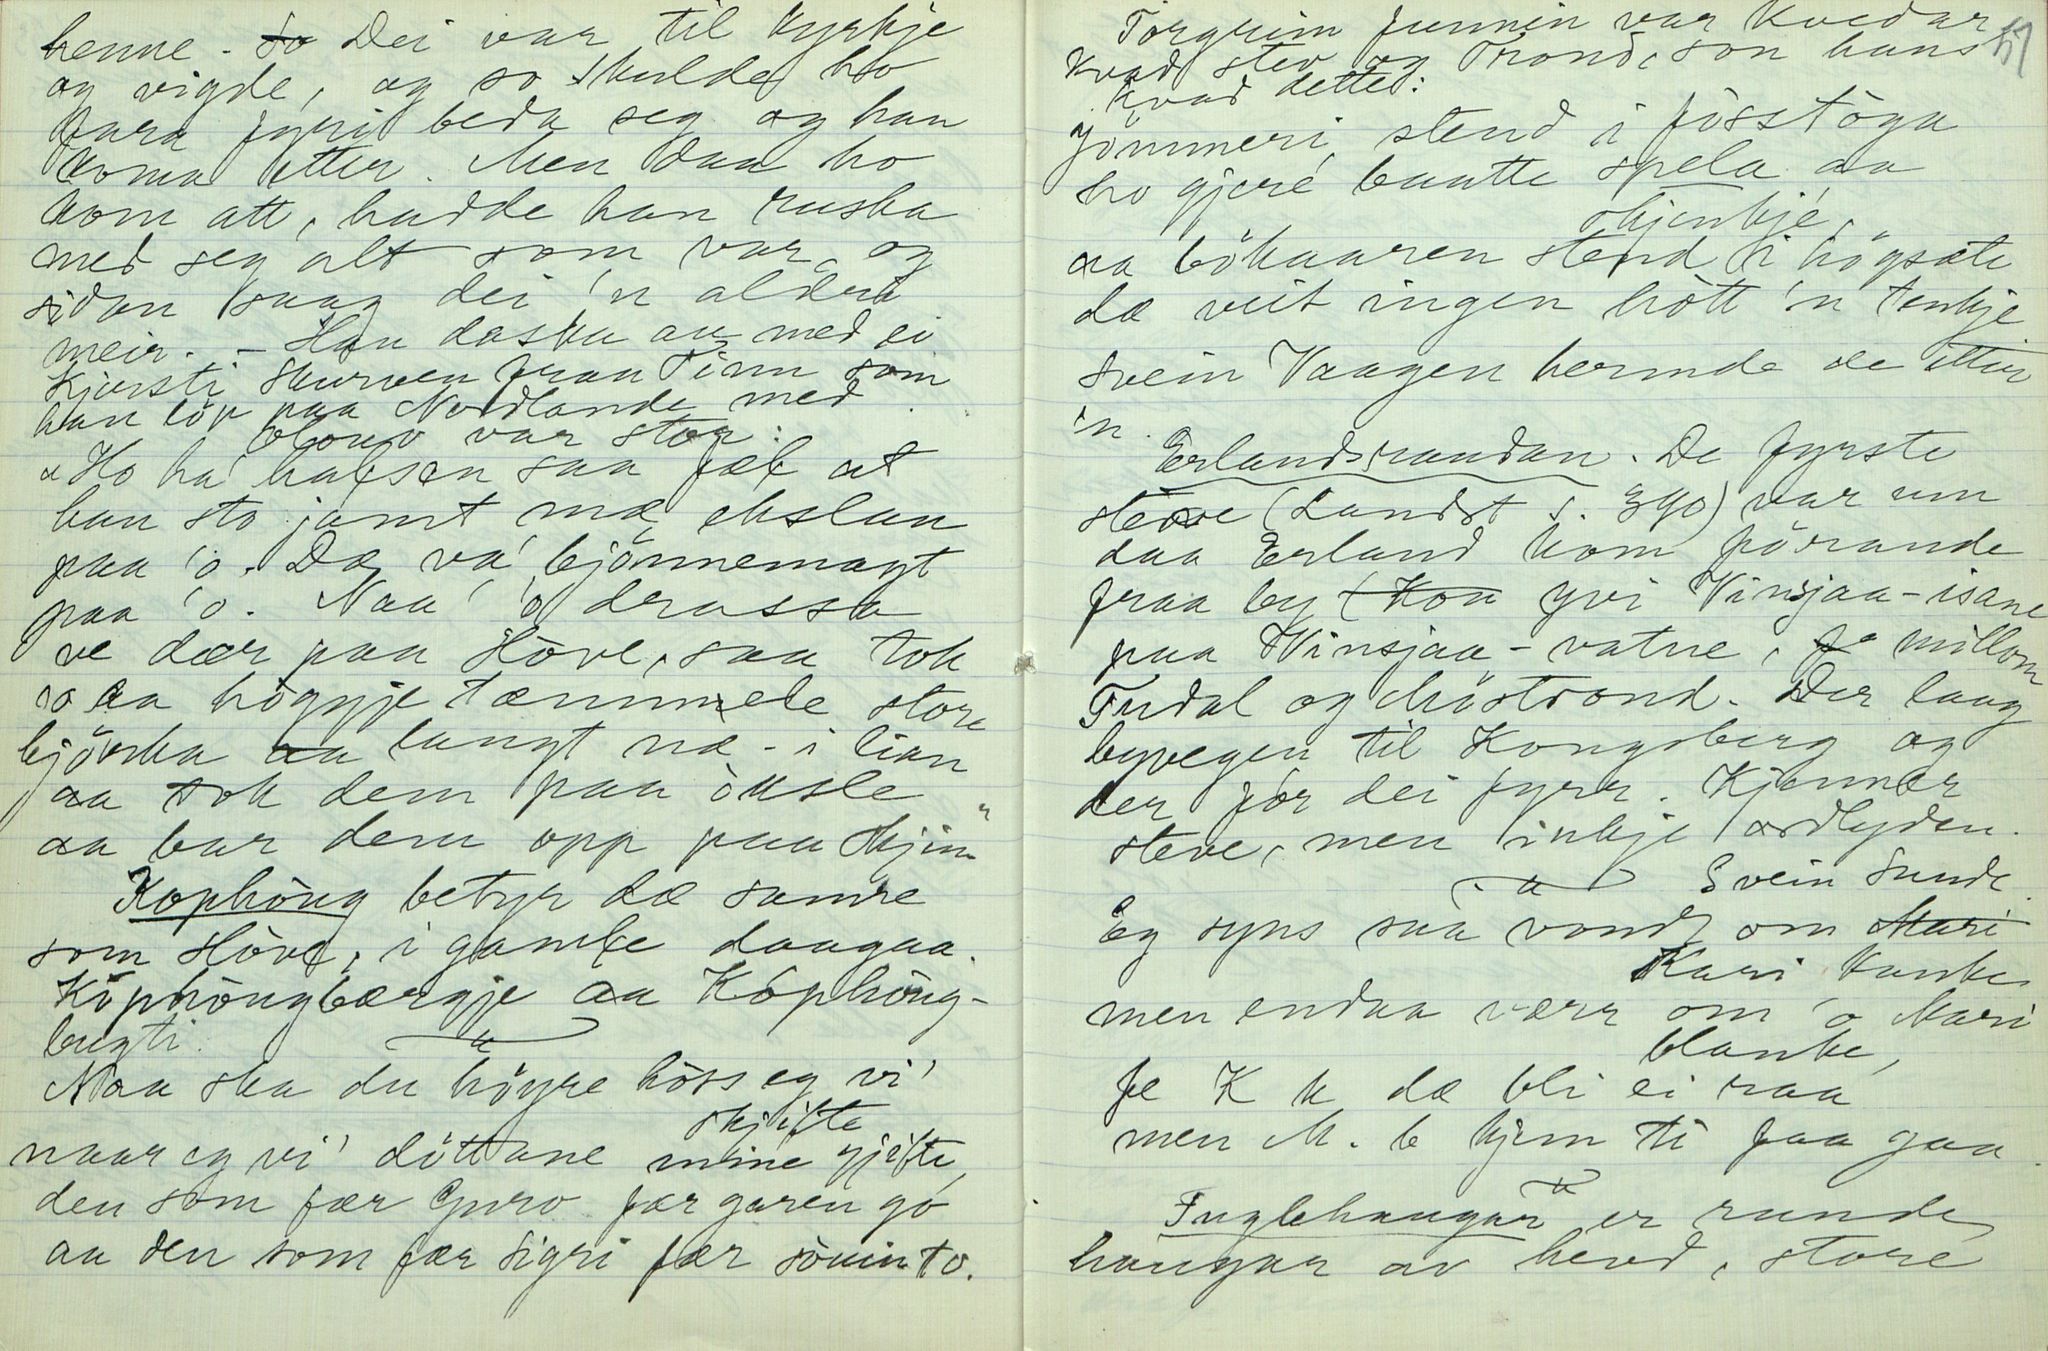 henne. So Dei var til kyrkje
og vigde, og so skulde ho
fara fyri beda seg og han
koma etter. Men daa ho
kom att, hadde han raska
med seg alt som var, og
sidan saag dei 'n aldri
meir. - Han daska au med ei
Kjersti Skurven fraa Tinn som
han löp paa Nordlande med.
Olouv var stor:
"Ho ha' halsen saa fæl at
han sto jamt mæ okslan
paa 'o. Dæ va' bjönnemagt
paa 'o. Naa 'o drassa
ve dær paa Höve, saa tok
'o aa högyje tæmmele store
björka aa langt næ - i lian
aa tok dem paa öksle
aa bar dem opp paa Skjim"
Kophöug betyr dæ samre
som Höve, i gamle daagaa.
Köphöugbærgje aa Kóphöug-
bugti.
Naa ska du höyre höss eg vi'
skjifte
naar eg vi' döttane mine gjifte,
den som fær Guro fær garen go
aa den som fær Sigri fær söuin to.
57
Torgrim Junnin var kvedar
kvad stev og Trond, son hans
kvad dette:
Jömmeri stend i fösstöga
ho gjere bautte spela aa
skjenkje,
aa bökaaren stend i högsæte
dæ veit ingen hòtt 'n tenkje
Svein Vaagen hermde de ittir
'n.
Erlandsraudan. De fyrste
steve (Landst s. 390) var um
daa Erland kom förande
fraa by (Kon yvi Vinsjaa-isane
paa Vinsjaa-vatne, millom
Tudal og Möstrond. Der laag
byvegen til Kongsberg og
der för dei fyrr. Kjenner
steve, men inkje ordlyden.
Svein Sunde
Eg syns saa vondt om Mari
Kari Kanke
men endaa værr om 'o Mari
blanke,
fe K k dæ bli ei raa
men M. b kjem ti faa gaa.
Fuglehaugar er runde
haugar av herd, store